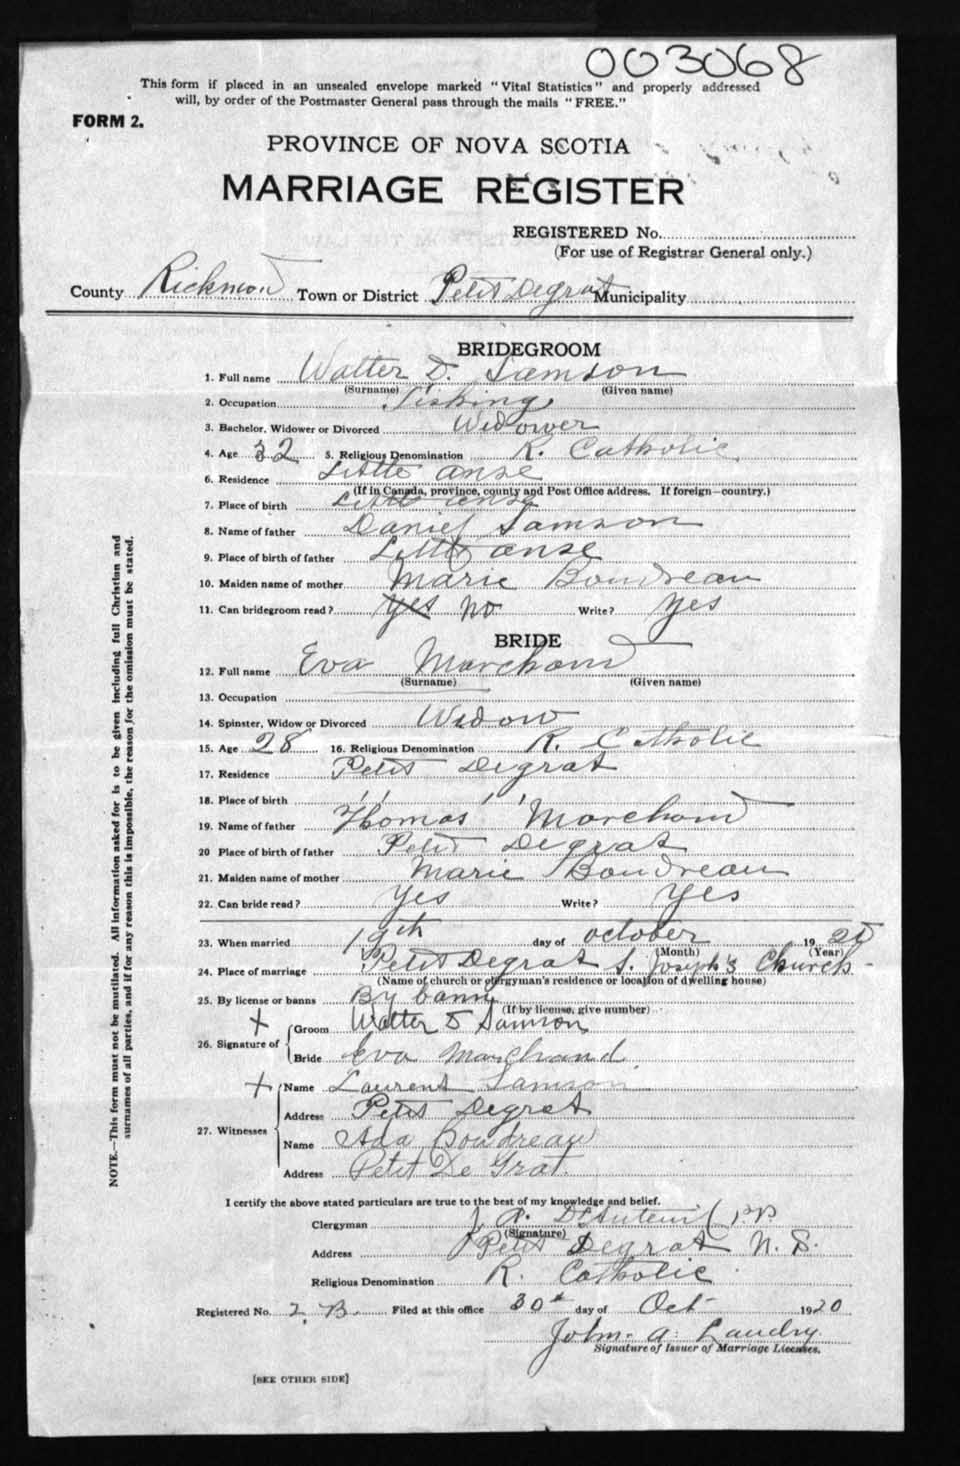 003068
This form if placed in an unsealed envelope marked "Vital Statistics" and properly addressed
will, by order of the Postmaster General pass through the mails "FREE."
FORM 2.
PROVINCE OF NOVA SCOTIA
MARRIAGE REGISTER
REGISTERED No.
(For use of Registrar General only.)
County Richmond Town or District Petit Degrat Municipality
BRIDEGROOM
1. Full name Walter D. Samson
(Surname) (Given name)
2. Occupation Fishing
3. Bachelor, Widower or Divorced Widower
4. Age 32 5. Religious Denomination R. Catholic
6. Residence Little anse
(If in Canada, province, county and Post Office address. If foreign—country.)
7. Place of birth Little anse
8. Name of father Daniel Samson
9. Place of birth of father Little anse
10. Maiden name of mother Marie Boudreau
11. Can bridegroom read? yes no Write? yes
BRIDE
12. Full name Eva Marchand
(Surname) (Given name)
13. Occupation
14. Spinster, Widow or Divorced Widow
15. Age 28 16. Religious Denomination R. Catholic
17. Residence Petit Degrat
18. Place of birth " "
19. Name of father Thomas Marchand
20 Place of birth of father Petit Degrat
21. Maiden name of mother Marie Boudreau
22. Can bride read? yes Write? yes
23. When married 19th day of october 1920
(Month) (Year)
24. Place of marriage Petit Degrat S. Joseph's Church
(Name of church or clergyman's residence or location of dwelling house)
25. By license or banns By banns
(If by license, give number)
26. Signature of
+ Groom Walter D Samson
Bride Eva Marchand
27. Witnesses
+ Name Laurent Samson
Address Petit Degrat
Name Ada Boudreau
Address Petit De Grat.
I certify the above stated particulars are true to the best of my knowledge and belief.
Clergyman J. A. D'Auteuil p.p.
(Signature)
Address Petit Degrat N. S.
Religious Denomination R. Catholic
Registered No. 2 B. Filed at this office 30th day of Oct 1920
John A. Landry
Signature of Issuer of Marriage Licenses.
[SEE OTHER SIDE]
NOTE.—This form must not be mutilated. All information asked for is to be given including full Christian and
surnames of all parties, and if for any reason this is impossible, the reason for the omission must be stated.